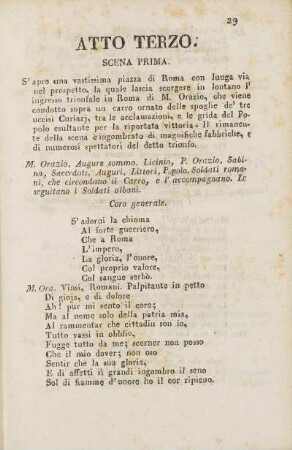 29
ATTO TERZO.
SCENA PRIMA.
S'apre una vastissima piazza di Roma con lunga via
nel prospetto, la quale lascia scorgere in lontano l'
ingresso trionfale in Roma di M. Orazio, che viene
condotto sopra un carro ornato delle spoglie de' tre
uccisi Curiazj, tra le acclamazioni, e le grida del Po-
polo esultante per la riportata vittoria. Il rimanen-
te della scena è ingombrato di magnifiche fabbriche, e
di numerosi spettatori del detto trionfo.
M. Orazio, Augure sommo. Licinio, P. Orazio, Sabi-
na, Sacerdoti, Auguri, Littori, Popolo. Soldati roma-
ni, che circondano il Carro, e l' accompagnano. Lo
seguitano i Soldati albani.
Coro generale.
S'adorni la chioma
Al forte guerriero,
Che a Roma
L'impero,
La gloria, l'onore,
Col proprio valore,
Col sangue serbò.
M. Ora. Vinsi, Romani. Palpitante in petto
Di gioja, e di dolore
Ah! pur mi sento il core;
Ma al nome solo della patria mia,
Al rammentar che cittadin son io,
Tutto vassi in obblio,
Fugge tutto da me; scerner non posso
Che il mio dover; non oso
Sentir che la sua gloria,
E di affetti sì grandi ingombro il seno
Sol di fiamme d'onore ho il cor ripieno.